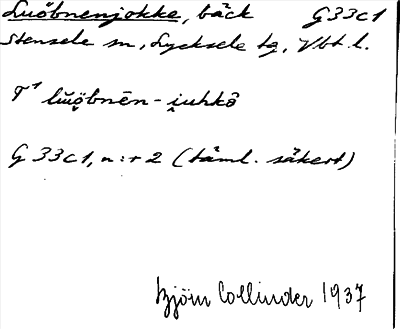 Luöbnenjokke, bäck G33c1
Stensele sn, Lycksele tg, Vbt. l.
T¹ lŭo̯öbnēn-i̯uhkō̂
G 33c1, n:r 2 (täml. säkert)
Björn Collinder 1937